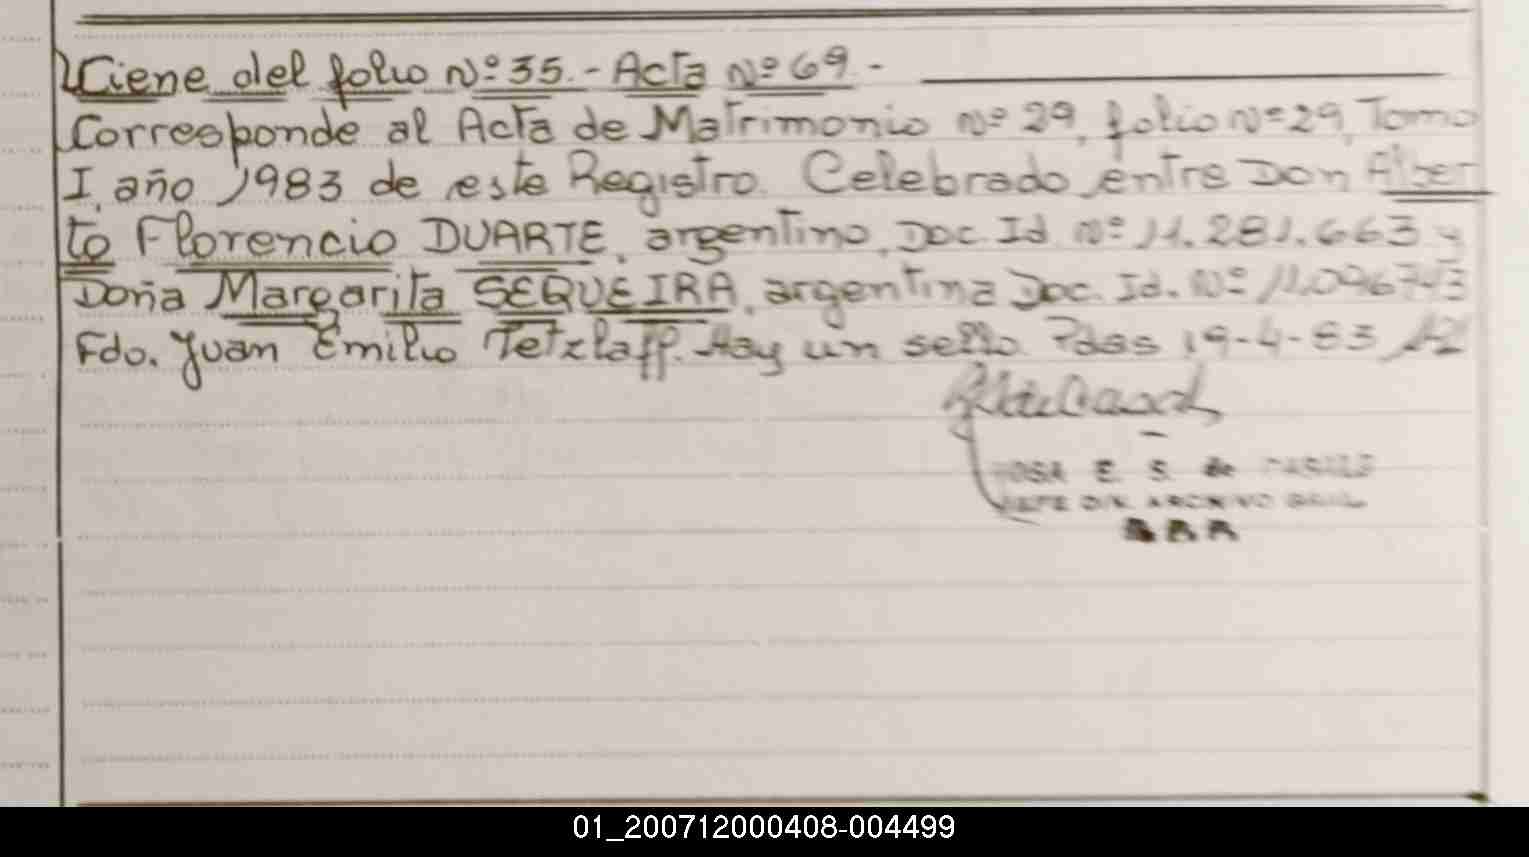 Viene del folio Nº 35.- Acta Nº 69.-
Corresponde al Acta de Matrimonio Nº 29, folio Nº 29, Tomo
I, año 1983 de este Registro. Celebrado entre Don Alber
to Florencio DUARTE, argentino, Doc. Id. Nº 11.281.663 y
Doña Margarita SEQUEIRA, argentina Doc. Id. Nº 11.096743
Fdo. Juan Emilio Tetzlaff. Hay un sello. Pdas 19-4-83
E. S. de
ARCHIVO GRAL
01_200712000408-004499